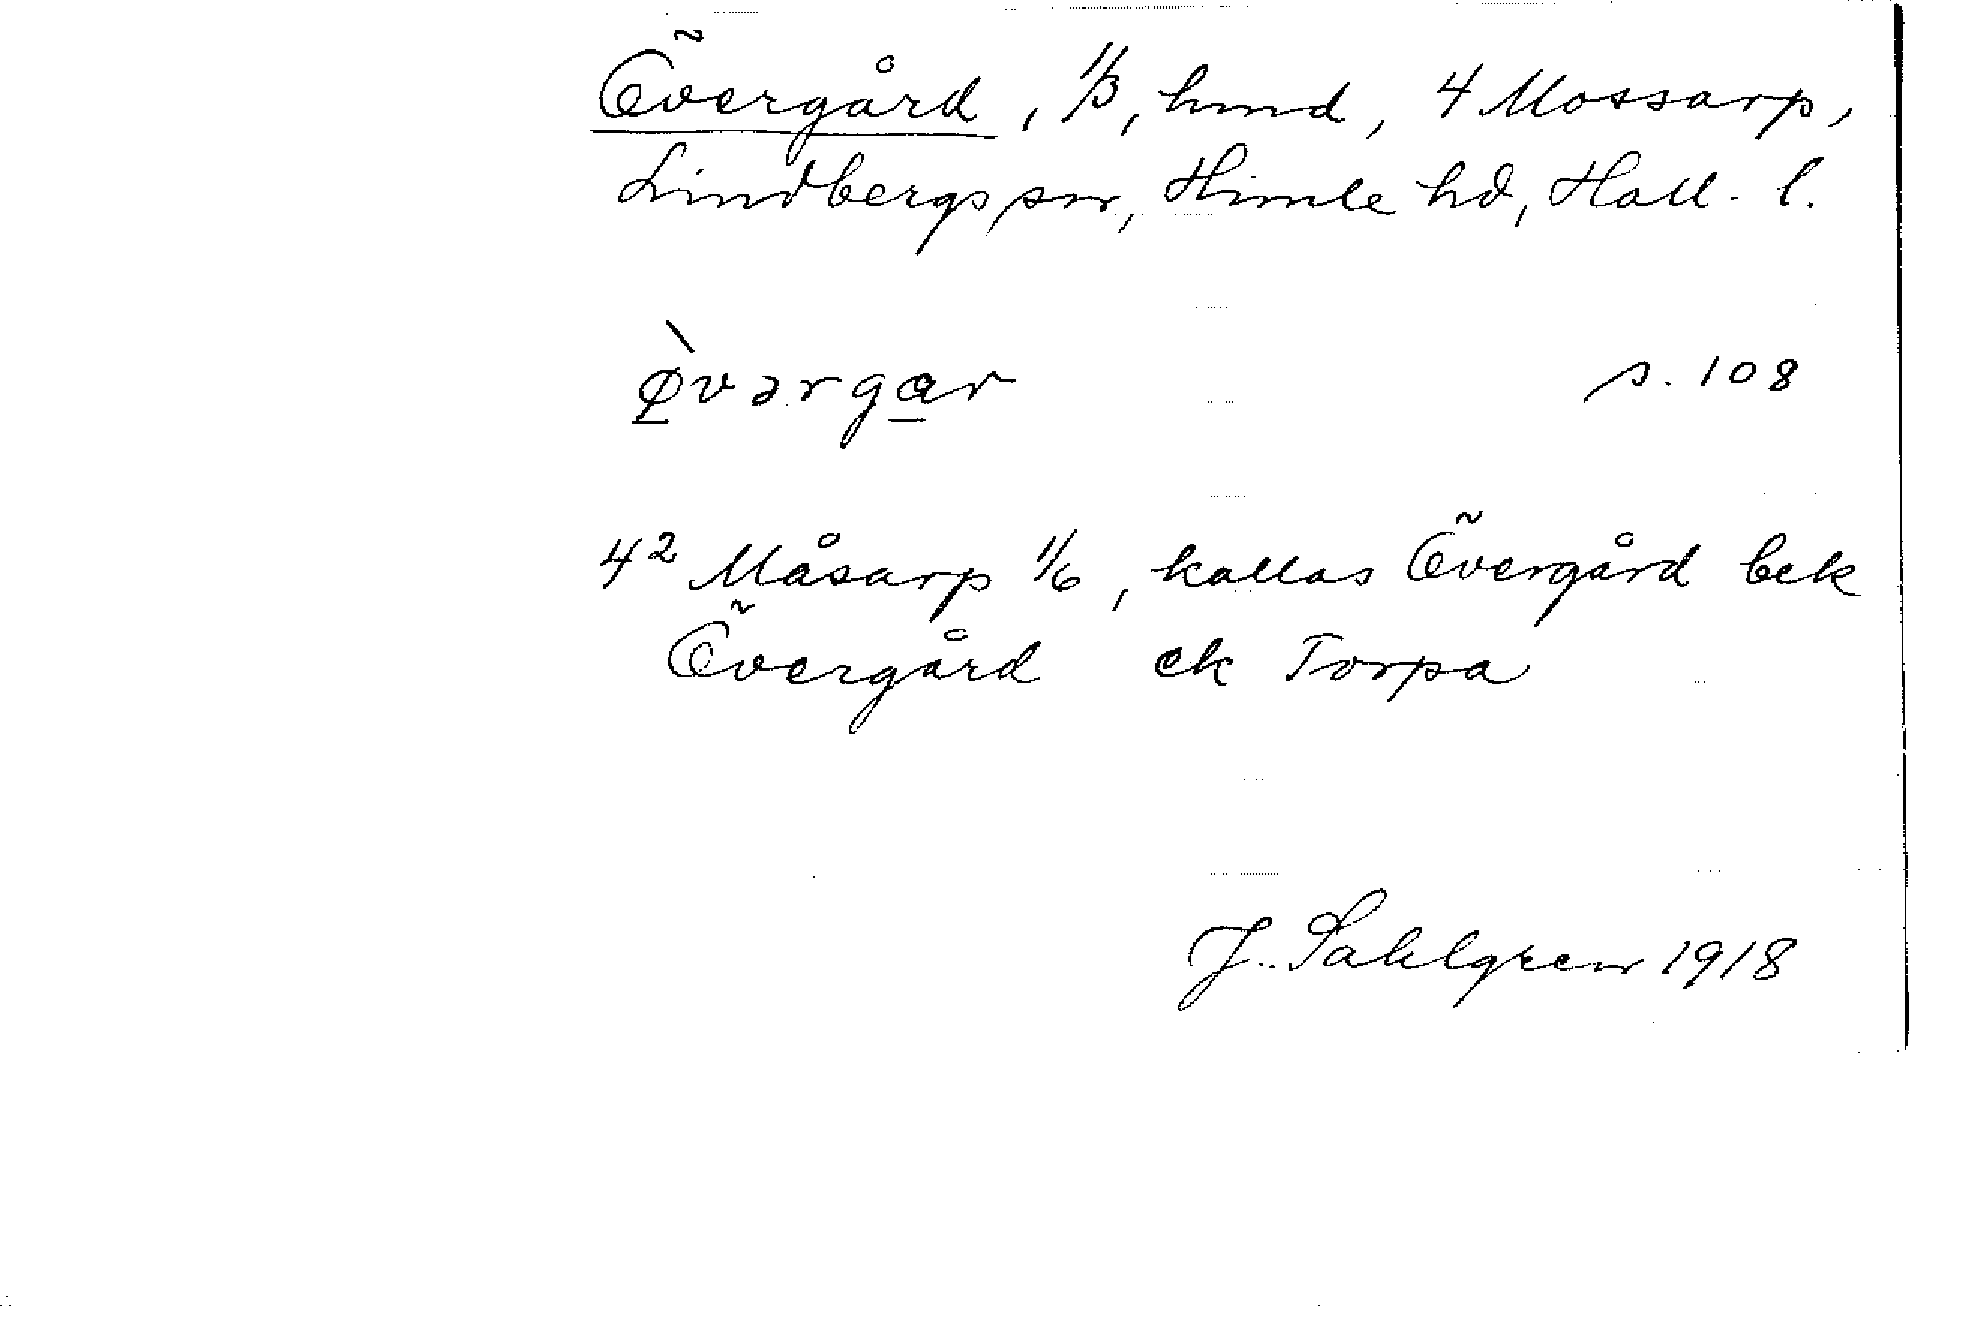 Övergård, 1/3, hmd, 4 Mossarp,
Lindbergs sn, Himle hd, Hall. l.
ø̱̀vərga̱r s. 108
4² Måsarp 1/6, kallas Övergård bek
Övergård ek Torpa
J. Sahlgren 1918